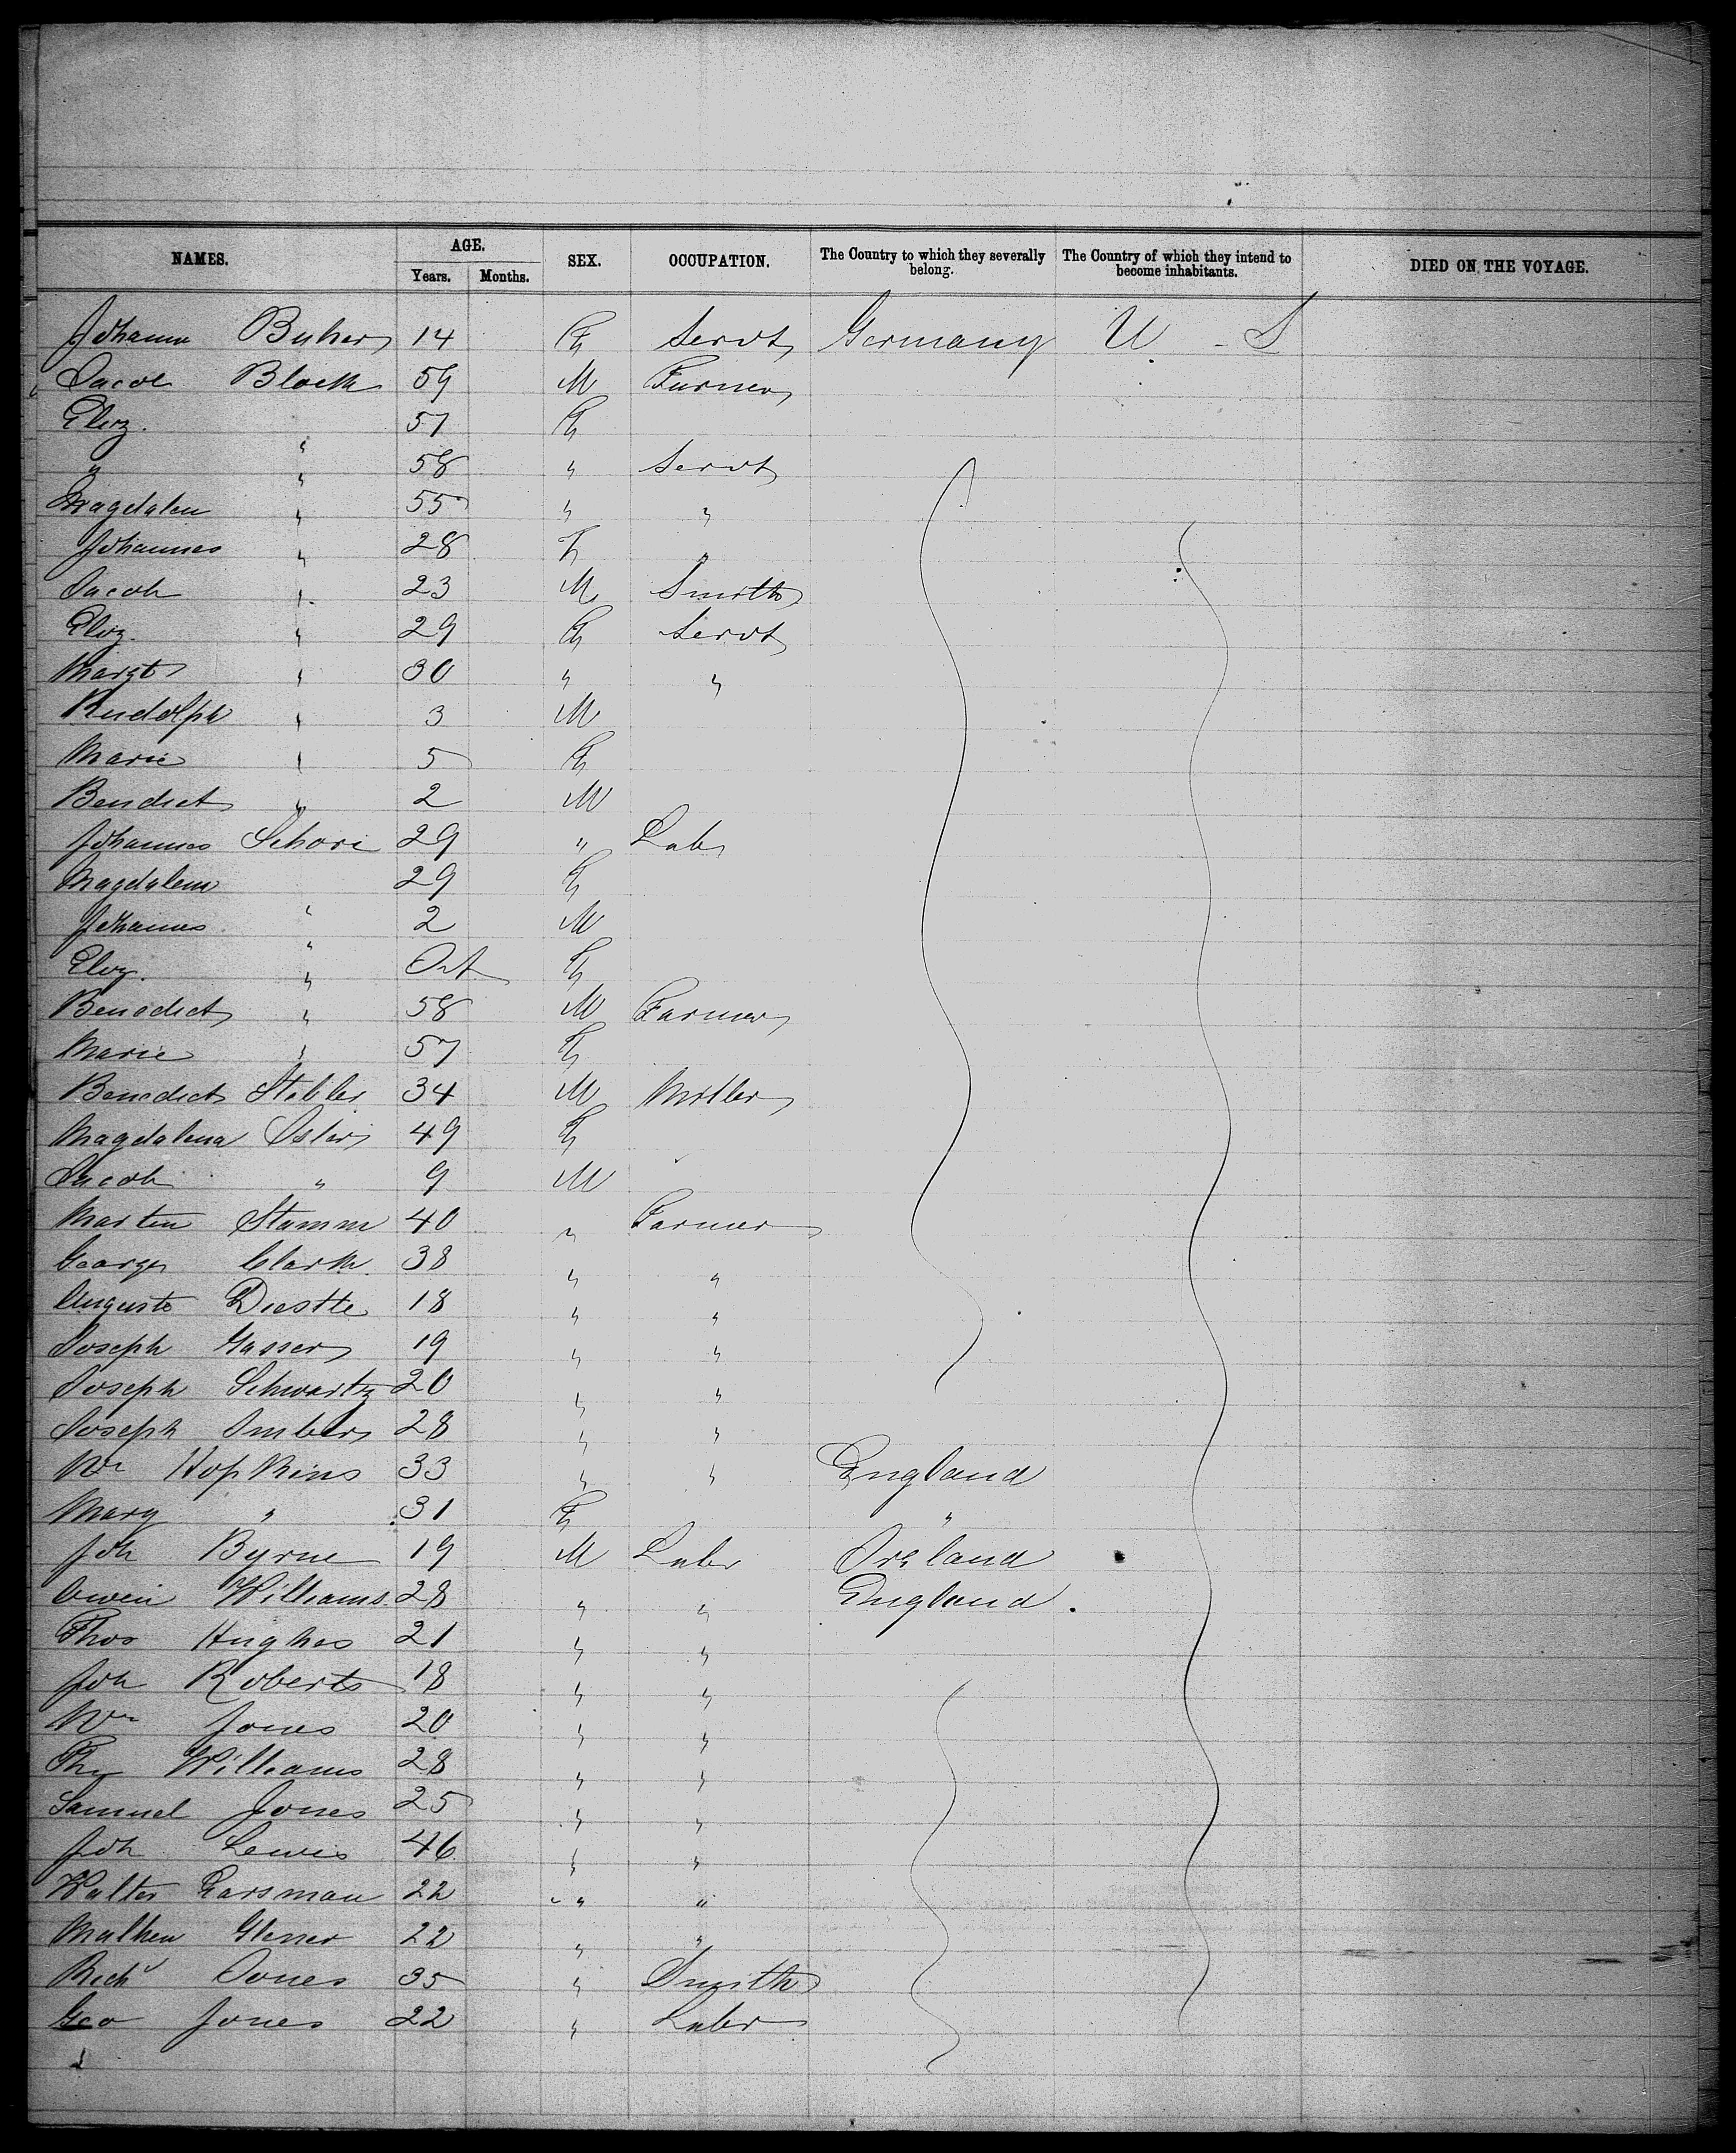 NAMES. AGE. SEX. OCCUPATION. The Country to which they severally belong. The Country of which they intend to become inhabitants. DIED ON THE VOYAGE.
Years. Months.
Johanna Buher 14 F Servt Germany U - S
Jacob Bloch 59 M Farmer
Eliz. " 57 F
" " 58 " Servt
Magdalen " 55 " "
Johannes " 28 F "
Jacob " 23 M Smith
Eliz. " 29 F Servt
Margt " 30 " "
Rudolph " 3 M
Marie " 5 F
Bendict " 2 M
Johannes Schori 29 " Lab
Magdalena 29 F
Johannes " 2 M
Eliz. " F
Benedict " 58 M Farmer
Marie " 57 F
Benedict Stabler 34 M Miller
Magdalena 49 F
Jacob " 9 M
Martin Stamm 40 " Farmer
George Clark 38 " "
Auguste Diestle 18 " "
Joseph Gasser 19 " "
Joseph Schwartz 20 " "
Joseph Imber 28 " "
Wm Hopkins 33 " " England
Mary " 31 F "
Joh Byrne 19 M Labr Ireland
Owen Williams 28 " " England.
Thos Hughes 21 " "
Joh Roberts 18 " "
Wm Jones 20 " "
Williams 28 " "
Samuel Jones 25 " "
Joh Lewis 46 " "
Walter 22 " "
Mathew 22 " "
Richd Jones 35 " Smith
Geo Jones 22 " Labr